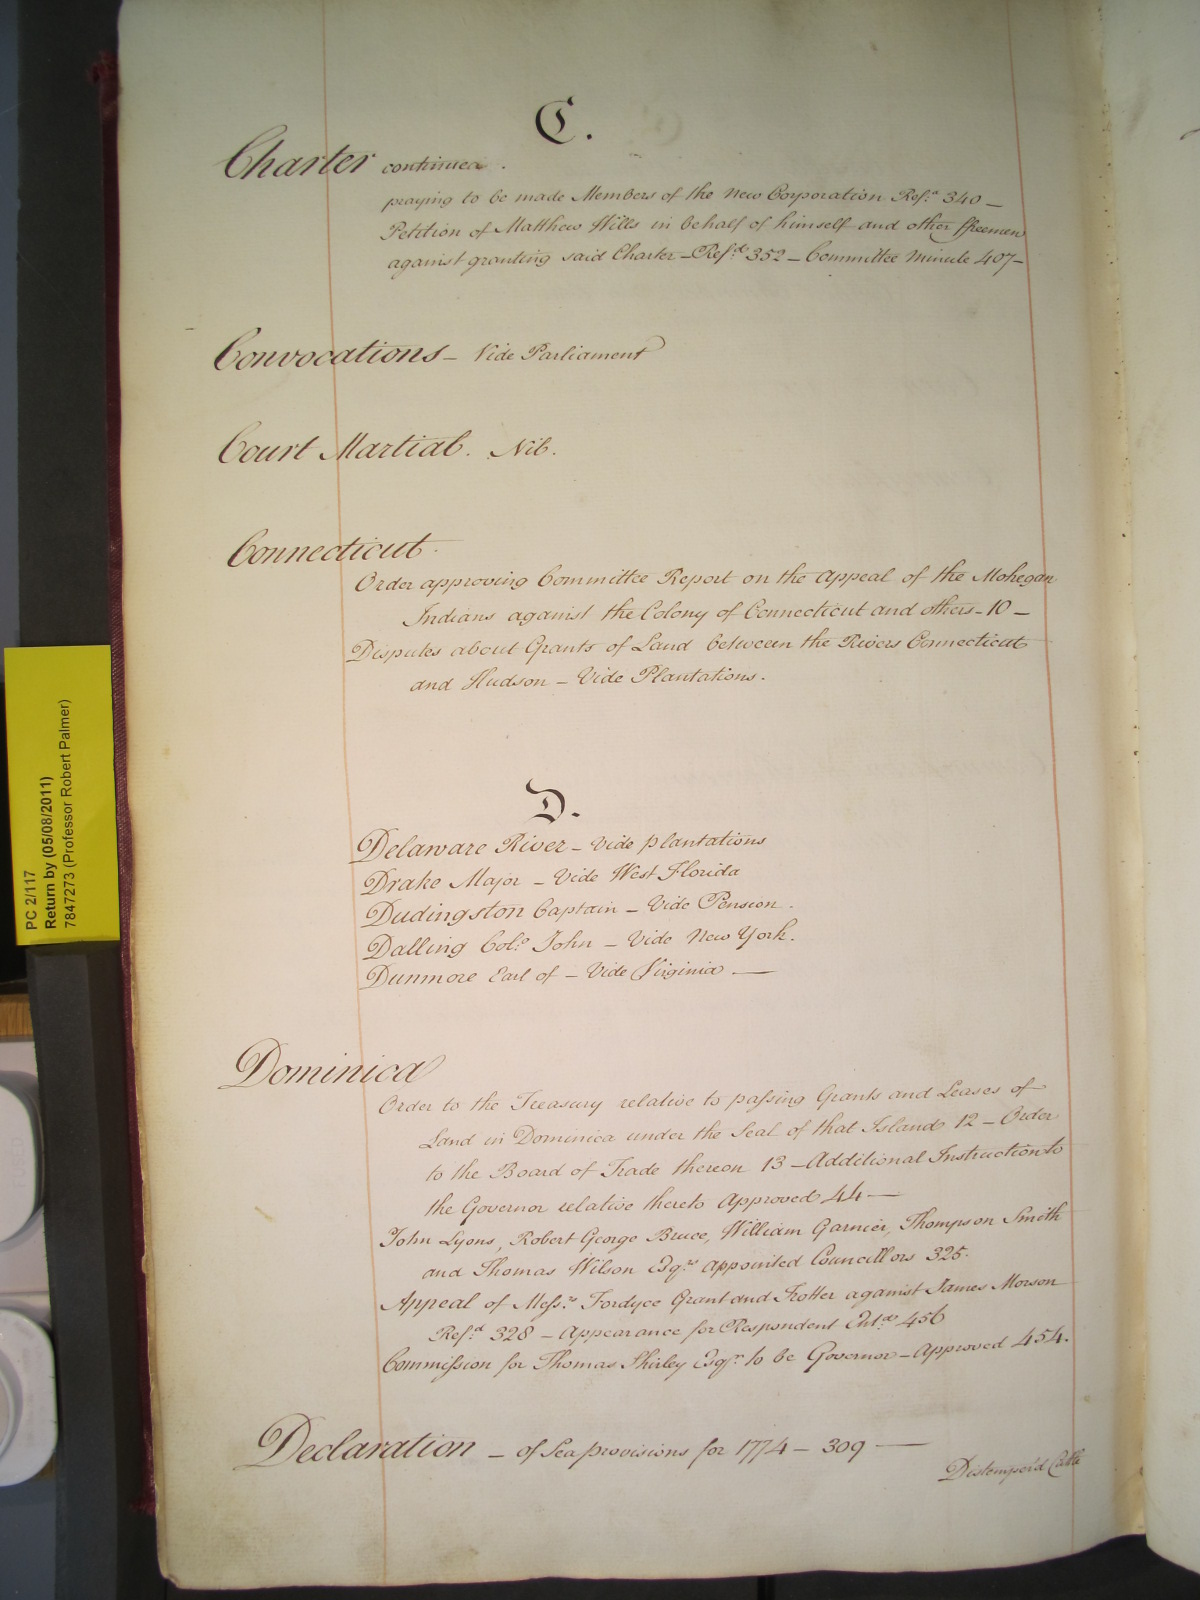 C.
Charter continued.
praying to be made Members of the New Corporation Ref.d 340 —
Petition of Matthew Wills in behalf of himself and other ffreemen
against granting said Charter — Ref.d 352 — Committee Minute 407 —
Convocations — Vide Parliament
Court Martial. Nil.
Connecticut.
Order approving Committee Report on the Appeal of the Mohegan
Indians against the Colony of Connecticut and others — 10 —
Disputes about Grants of Land between the Rivers Connecticut
and Hudson — Vide Plantations.
D.
Delaware River — Vide plantations
Drake Major — Vide West Florida
Dudingston Captain — Vide Pension.
Dalling Col.o John — Vide New York.
Dunmore Earl of — Vide Virginia —
Dominica
Order to the Treasury relative to passing Grants and Leases of
Land in Dominica under the Seal of that Island 12 — Order
to the Board of Trade thereon 13 — Additional Instruction to
the Governor relative thereto Approved 44 —
John Lyons, Robert George Bruce, William Garnier, Thompson Smith
and Thomas Wilson Esq.rs appointed Councillors 325.
Appeal of Mess.rs Fordyce Grant and Trotter against James Morson
Ref.d 328 — Appearance for Respondent Ent.d 456
Commission for Thomas Shirley Esq.r to be Governor — Approved 454.
Declaration — of Sea provisions for 1774 — 309 —
Distemper'd Cattle
PC 2/117
Return by (05/08/2011)
7847273 (Professor Robert Palmer)